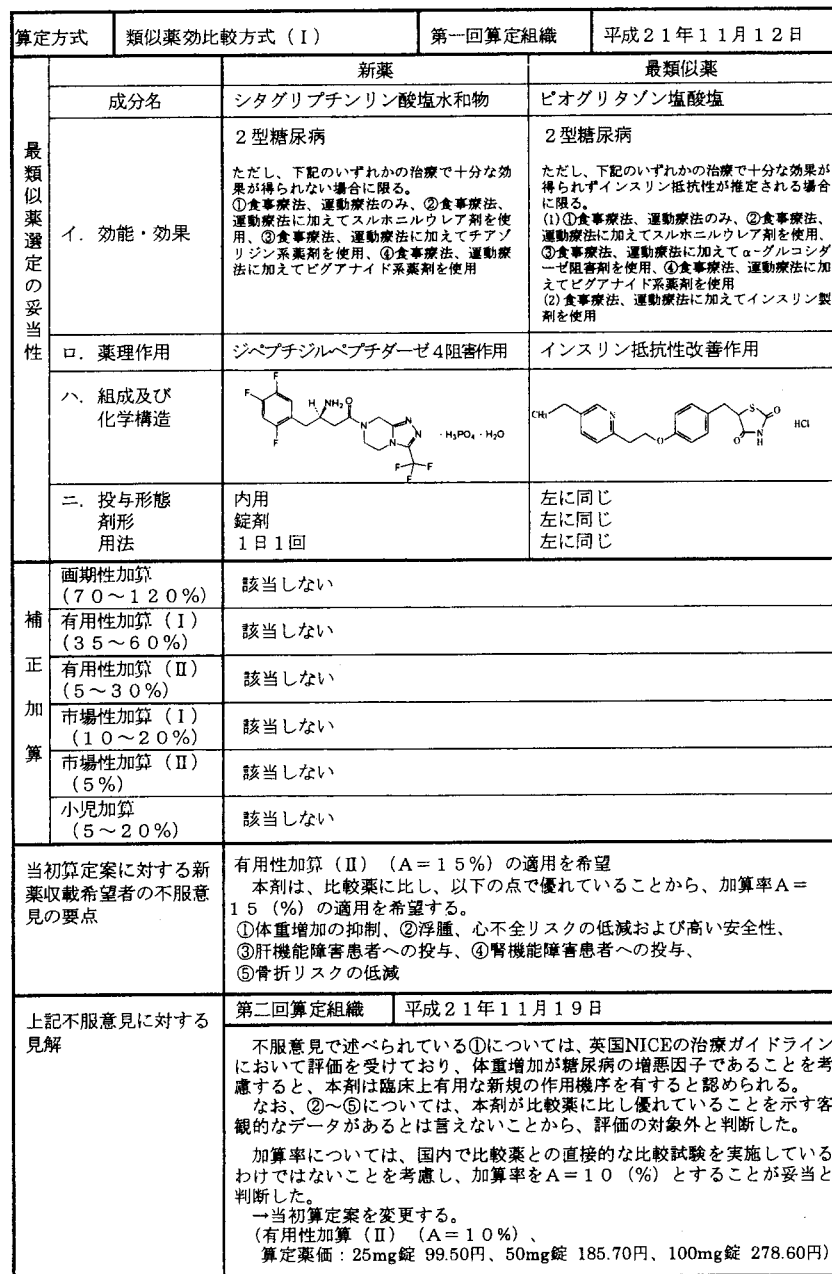 算定方式 類似薬効比較方式（Ⅰ） 第一回算定組織 平成２１年１１月１２日
最類似薬選定の妥当性
新薬 最類似薬
成分名 シタグリプチンリン酸塩水和物 ピオグリタゾン塩酸塩
イ．効能・効果
２型糖尿病
ただし、下記のいずれかの治療で十分な効
果が得られない場合に限る。
①食事療法、運動療法のみ、②食事療法、
運動療法に加えてスルホニルウレア剤を使
用、③食事療法、運動療法に加えてチアゾ
リジン系薬剤を使用、④食事療法、運動療
法に加えてビグアナイド系薬剤を使用
２型糖尿病
ただし、下記のいずれかの治療で十分な効果が
得られずインスリン抵抗性が推定される場合
に限る。
(1)①食事療法、運動療法のみ、②食事療法、
運動療法に加えてスルホニルウレア剤を使用、
③食事療法、運動療法に加えてα-グルコシダ
ーゼ阻害剤を使用、④食事療法、運動療法に加
えてビグアナイド系薬剤を使用
(2)食事療法、運動療法に加えてインスリン製
剤を使用
ロ．薬理作用 ジペプチジルペプチダーゼ４阻害作用 インスリン抵抗性改善作用
ハ．組成及び
化学構造
F F F H NH₂ O N N N N F F F · H₃PO₄ · H₂O
CH₃ N O S O O N H HCl
ニ．投与形態 内用 左に同じ
剤形 錠剤 左に同じ
用法 １日１回 左に同じ
補正加算
画期性加算
（７０～１２０％） 該当しない
有用性加算（Ⅰ）
（３５～６０％） 該当しない
有用性加算（Ⅱ）
（５～３０％） 該当しない
市場性加算（Ⅰ）
（１０～２０％） 該当しない
市場性加算（Ⅱ）
（５％） 該当しない
小児加算
（５～２０％） 該当しない
当初算定案に対する新
薬収載希望者の不服意
見の要点
有用性加算（Ⅱ）（Ａ＝１５％）の適用を希望
本剤は、比較薬に比し、以下の点で優れていることから、加算率Ａ＝
１５（％）の適用を希望する。
①体重増加の抑制、②浮腫、心不全リスクの低減および高い安全性、
③肝機能障害患者への投与、④腎機能障害患者への投与、
⑤骨折リスクの低減
上記不服意見に対する
見解
第二回算定組織 平成２１年１１月１９日
不服意見で述べられている①については、英国NICEの治療ガイドライン
において評価を受けており、体重増加が糖尿病の増悪因子であることを考
慮すると、本剤は臨床上有用な新規の作用機序を有すると認められる。
なお、②～⑤については、本剤が比較薬に比し優れていることを示す客
観的なデータがあるとは言えないことから、評価の対象外と判断した。
加算率については、国内で比較薬との直接的な比較試験を実施している
わけではないことを考慮し、加算率をＡ＝１０（％）とすることが妥当と
判断した。
→当初算定案を変更する。
（有用性加算（Ⅱ）（Ａ＝１０％）、
算定薬価：25mg錠 99.50円、50mg錠 185.70円、100mg錠 278.60円）